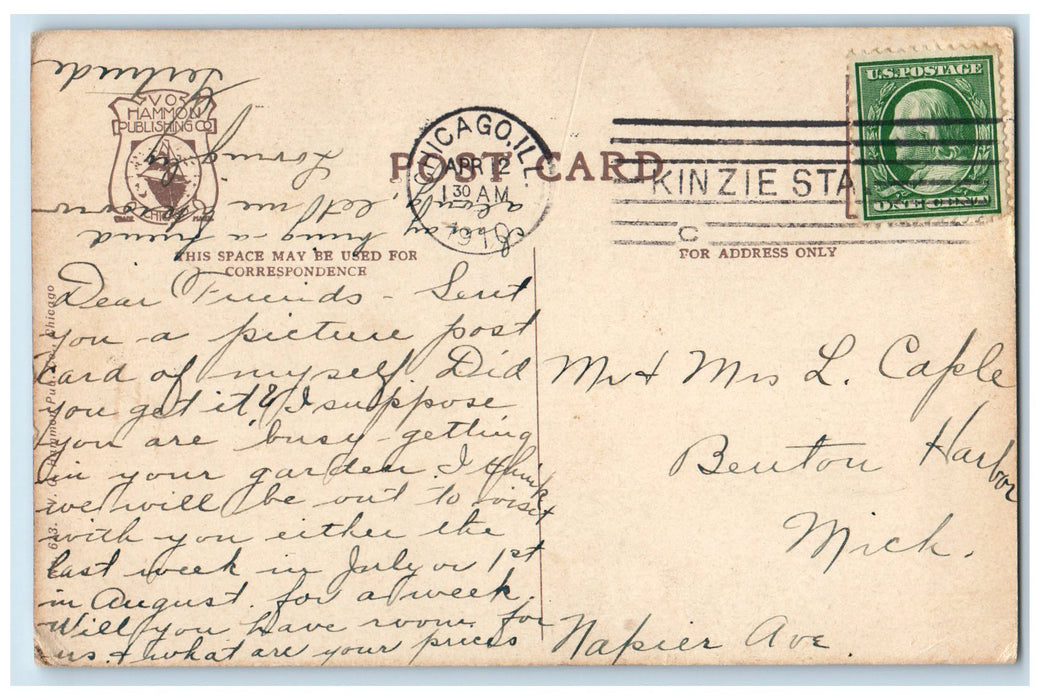 V.O.
HAMMON
PUBLISHING CO.
CHICAGO
TRADE MARK
POST CARD
THIS SPACE MAY BE USED FOR
CORRESPONDENCE
FOR ADDRESS ONLY
CHICAGO, ILL.
APR 12
1 30 AM
1910
KINZIE STA
C
U.S. POSTAGE
ONE CENT
Dear Friends - Sent
you a picture post
card of myself Did
you get it? I suppose
you are busy getting
in your garden. I think
we will be out to visit
with you either the
last week in July or 1st
in August for a week.
Will you have room for
us & what are your prices
I may bring a friend
along let me know
Loving
Gertrude
Mr & Mrs L. Caple
Benton Harbor
Mich.
Napier Ave.
623. V. O. Hammon Pub. Co., Chicago